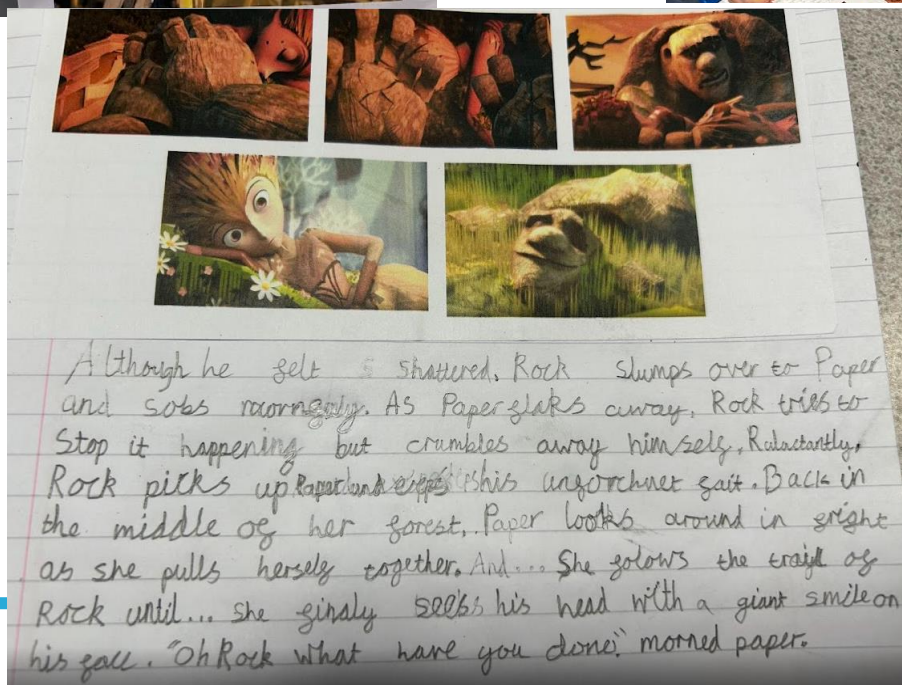 Although he felt shattered, Rock slumps over to Paper
and sobs mornegaly. As Paper flaks away, Rock tries to
Stop it happening but crumbles away himself, Raluctantly,
Rock picks up Paper and his unforchnet fait. Back in
the middle of her forest, Paper looks around in fright
as she pulls herself together. And... She folows the trayl of
Rock until... She finaly sees his head with a giant smile on
his face. "Oh Rock what have you done." morned paper.